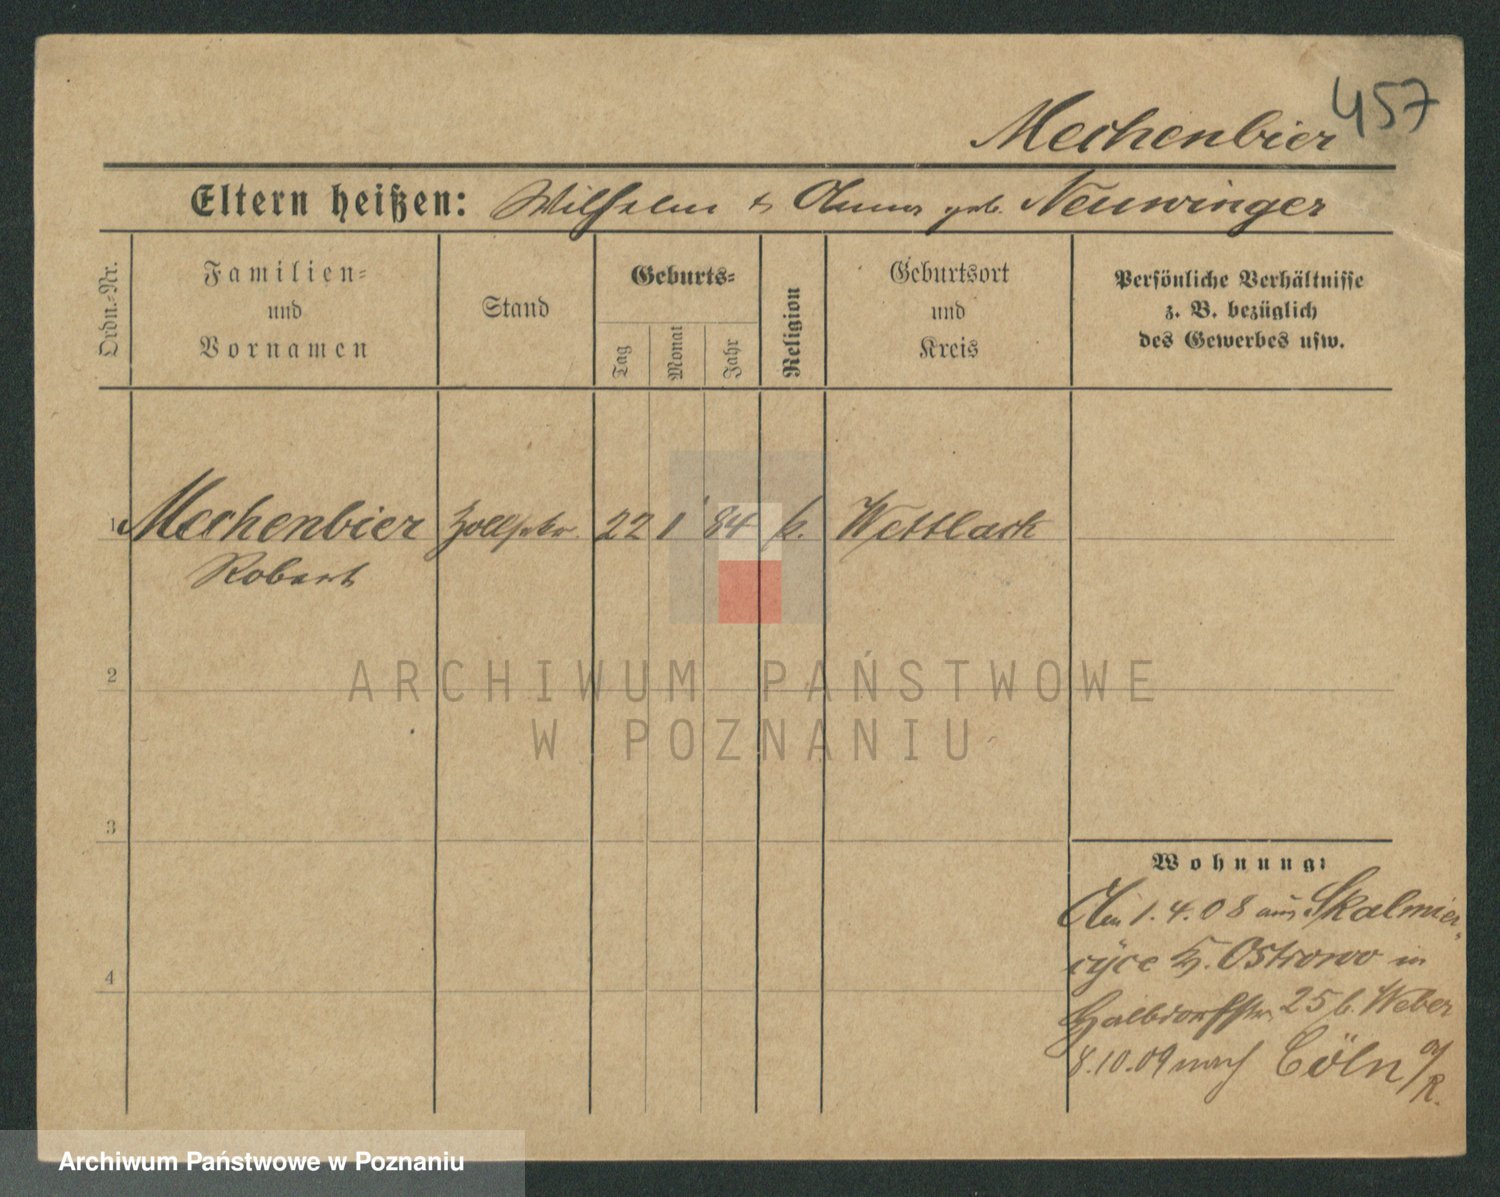 457
Mechenbier
Eltern heißen: Wilhelm & Anna geb. Neuwinger
Ordn.-Nr.
Familien-
und
Vornamen
Stand
Geburts-
Tag
Monat
Jahr
Religion
Geburtsort
und
Kreis
Persönliche Verhältnisse
z. B. bezüglich
des Gewerbes usw.
1 Mechenbier 22 1 84 k. Wettlack
Robert
2
3
4
Wohnung:
Am 1.4.08 aus Skalmier-
cyce K. Ostrowo in
Halbdorfstr. 25 b. Weber
8.10.09 nach Cöln a/R.
ARCHIWUM PAŃSTWOWE
W POZNANIU
Archiwum Państwowe w Poznaniu